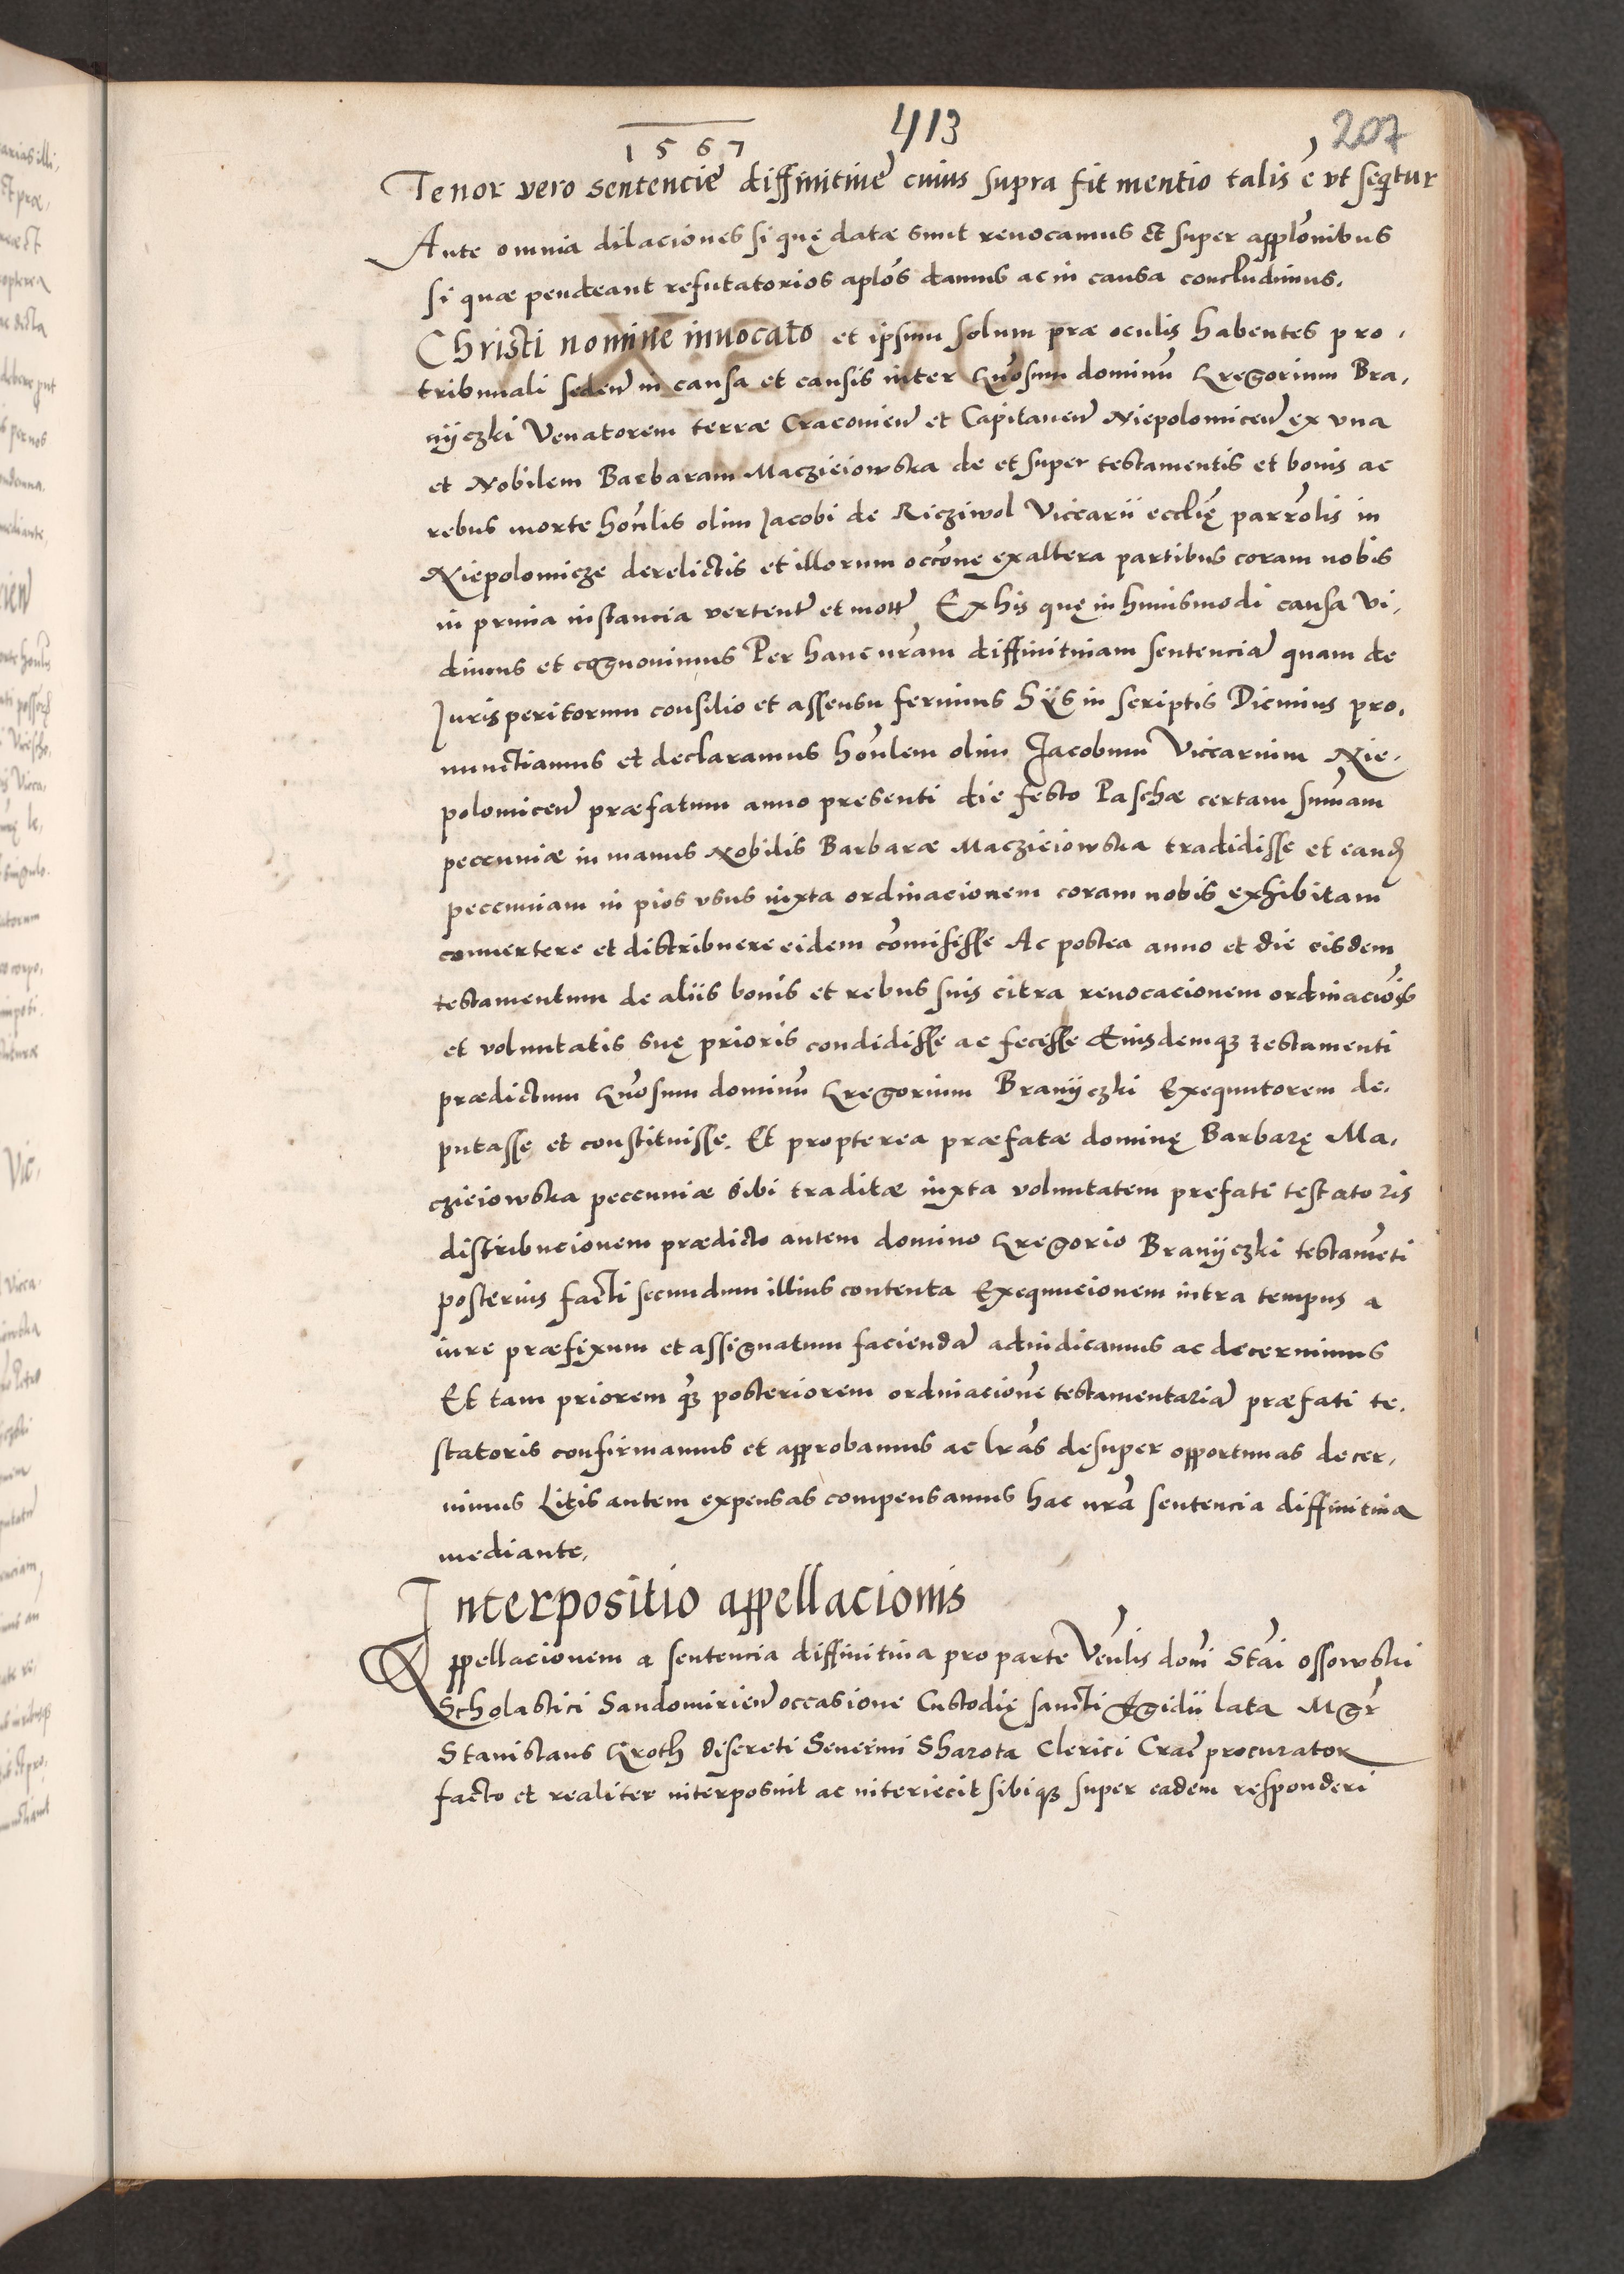 413
207
1567
Tenor vero sentencie diffinitiue cuius supra fit mentio talis ē vt seqitur
Ante omnia dilaciones si quę datæ sunt reuocamus et super applōnibus
si quæ pendeant refutatorios aplōs damus ac in causa concludimus.
Christi nomine inuocato et ipsum solum præ oculis habentes pro,
tribunali seden̄ in causa et causis inter Gn̄osum dominū Gregorium Bra,
nÿczki Venatorem terræ Cracouien̄ et Capitaneū Niepolomicen̄ ex vna
et Nobilem Barbaram Maczieiowska de et super testamentis et bonis ac
rebus morte honīlis olim Jacobi de Ricziwol Viccarii ecclię parrōlis in
Niepolomicze derelictis et illorum occōne ex altera partibus coram nobis
in prima instancia vertentꝭ et motꝭ Ex his quę in huiusmodi causa vi,
dimus et cognouimus Per hanc nrām diffinitiuam sentenciā quam de
Jurisperitorum consilio et assensu ferimus hÿs in scriptis Dicimus pro,
nunctiamus et declaramus honlēm olim Jacobum Viccarium Nie,
polomicen̄ præfatum anno presenti die festo Paschæ certam sum̄am
peccuniæ in manus Nobilis Barbaræ Maczieiowska tradidisse et eandꝫ
peccuniam in pios vsus iuxta ordinacionem coram nobis exhibitam
conuertere et distribuere eidem cōmisisse Ac postea anno et die eisdem
testamentum de aliis bonis et rebus suis citra reuocacionem ordinaciōis
et voluntatis suę prioris condidisse ac fecisse Eiusdemqꝫ testamenti
prædictum Gn̄osum dominū Gregorium Branÿczki Exequutorem de,
putasse et constituisse. Et propterea præfatæ dominę Barbarę Ma,
czieiowska peccuniæ sibi traditæ iuxta voluntatem prefati testatoris
distribucionem prædicto autem domino Gregorio Branÿczki testamēti
posterius facti secundum illius contenta Exequucionem intra tempus a
iure præfixum et assignatum faciendā adiudicamus ac decernimus
Et tam priorem qꝫ posteriorem ordinacionē testamentariā præfati te,
statoris confirmamus et approbamus ac lrās desuper opportunas decer,
nimus Litis autem expensas compensamus hac nrā sentencia diffinitiua
mediante,
Interpositio appellacionis
Appellacionem a sentencia diffinitiua pro parte Venlīs domī Stāi Ossowski
Scholastici Sandomirien̄ occasione Custodię sancti Egidii lata Mgr̄
Stanislaus Groth discreti Seuerini Sharota Clerici Crac̄ procurator
facto et realiter interposuit ac interiecit sibiqꝫ super eadem responderi